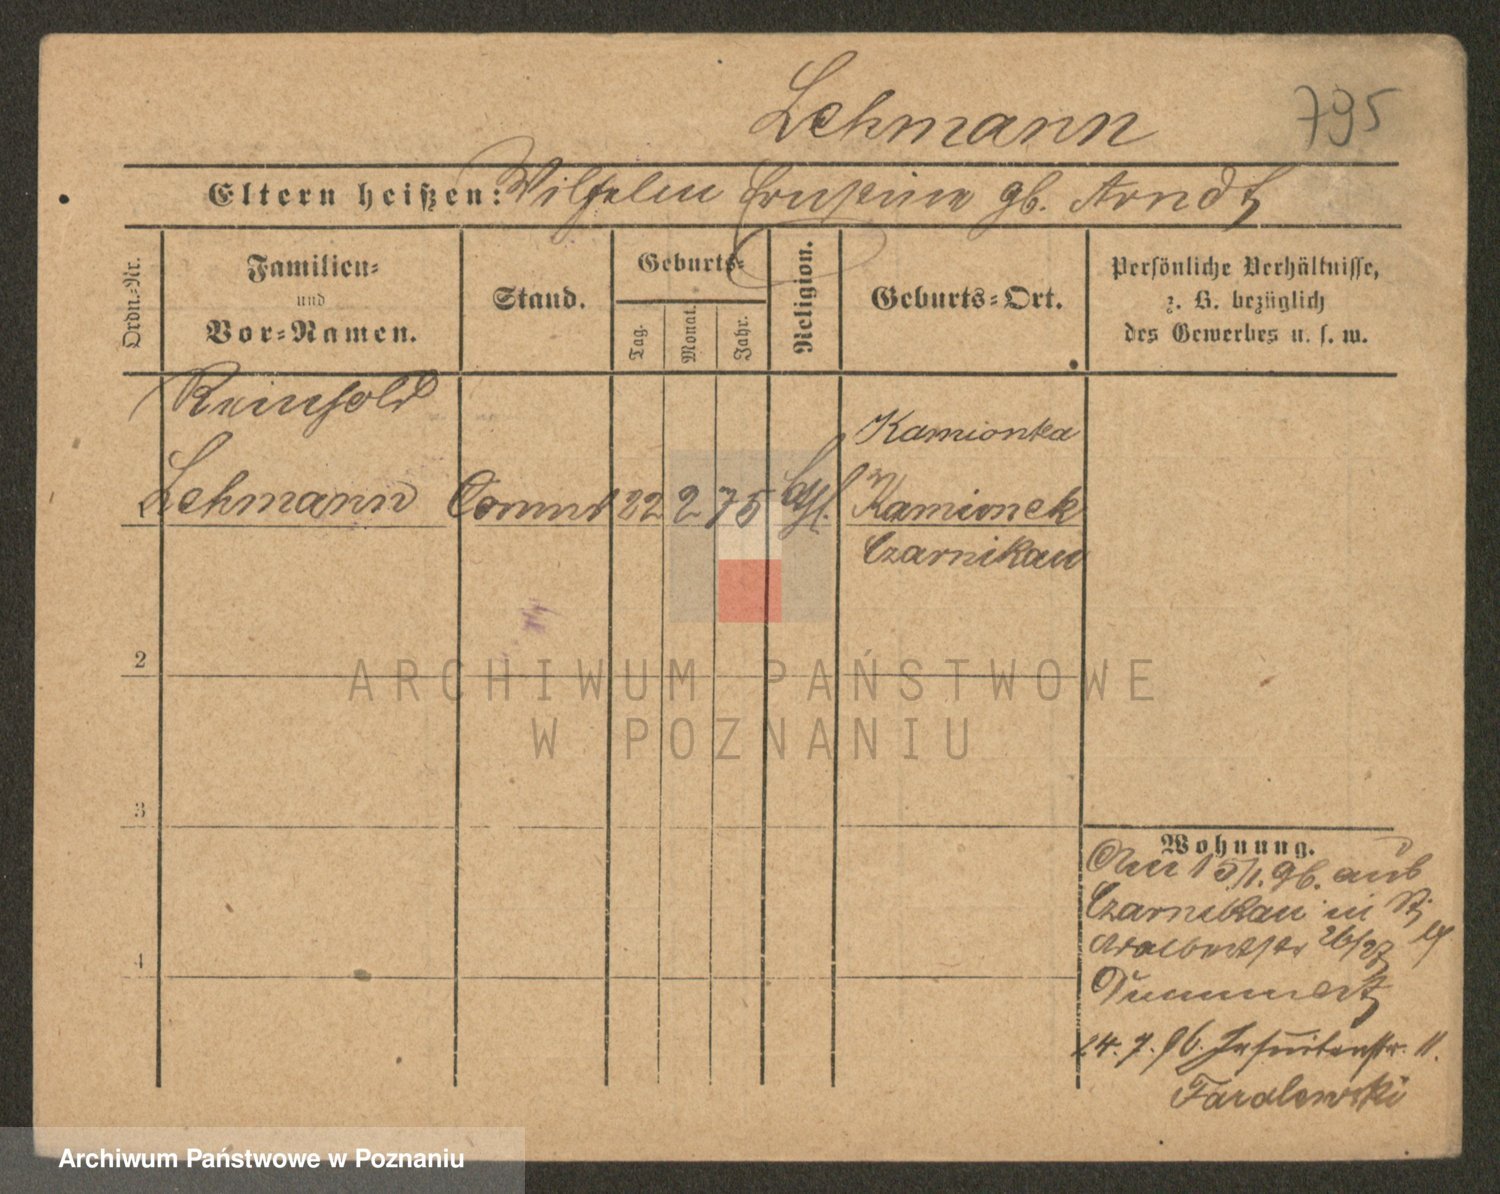 Lehmann
795
Eltern heißen: Wilhelm Ernstine gb. Arndt
Ordn.-Nr.
Familien-
und
Vor-Namen.
Stand.
Geburts-
Tag.
Monat.
Jahr.
Religion.
Geburts-Ort.
Persönliche Verhältnisse,
z. B. bezüglich
des Gewerbes u. s. w.
Reinhold
Lehmann
22 2 75
Kamionka
Kamionek
Czarnikau
2
3
4
Wohnung.
Am 15/1. 96. aus
Czarnikau in St
26/27
24. 7. 96. Jesuitenstr. 11.
ARCHIWUM PAŃSTWOWE
W POZNANIU
Archiwum Państwowe w Poznaniu